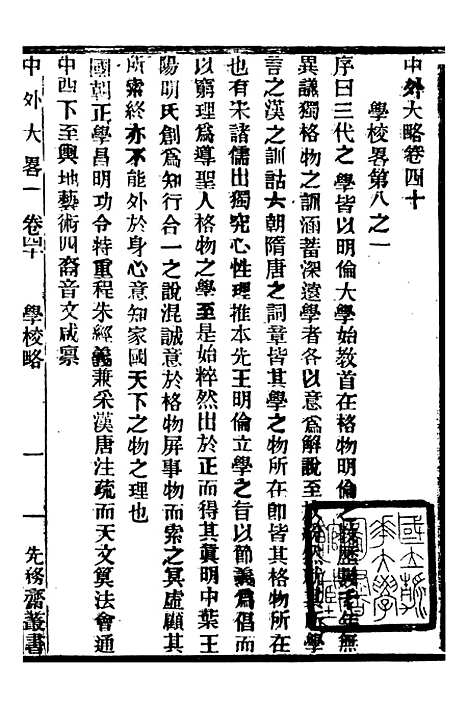 中外大略卷四十
學校畧第八之一
序曰三代之學皆以明倫大學始教首在格物明倫之
異議獨格物之訓涵蓄深遠學者各以意爲解說至
言之漢之訓詁六朝隋唐之詞章皆其學之物所在卽皆其格物之學
也有宋諸儒出獨究心性理推本先王明倫立學之旨以節義爲倡而
以窮理爲導聖人格物之學至是始粹然出於正而得其眞明中葉王
陽明氏創爲知行合一之說混誠意於格物屏事物而索之冥虛顧其
所索終亦不能外於身心意知家國天下之物之理也
國朝正學昌明功令特重程朱經義兼采漢唐注疏而天文算法會通
中西下至輿地藝術四裔音文咸禀
中外大畧 卷四十 學校略 一 先務齋叢書
國立 華大學 圖書